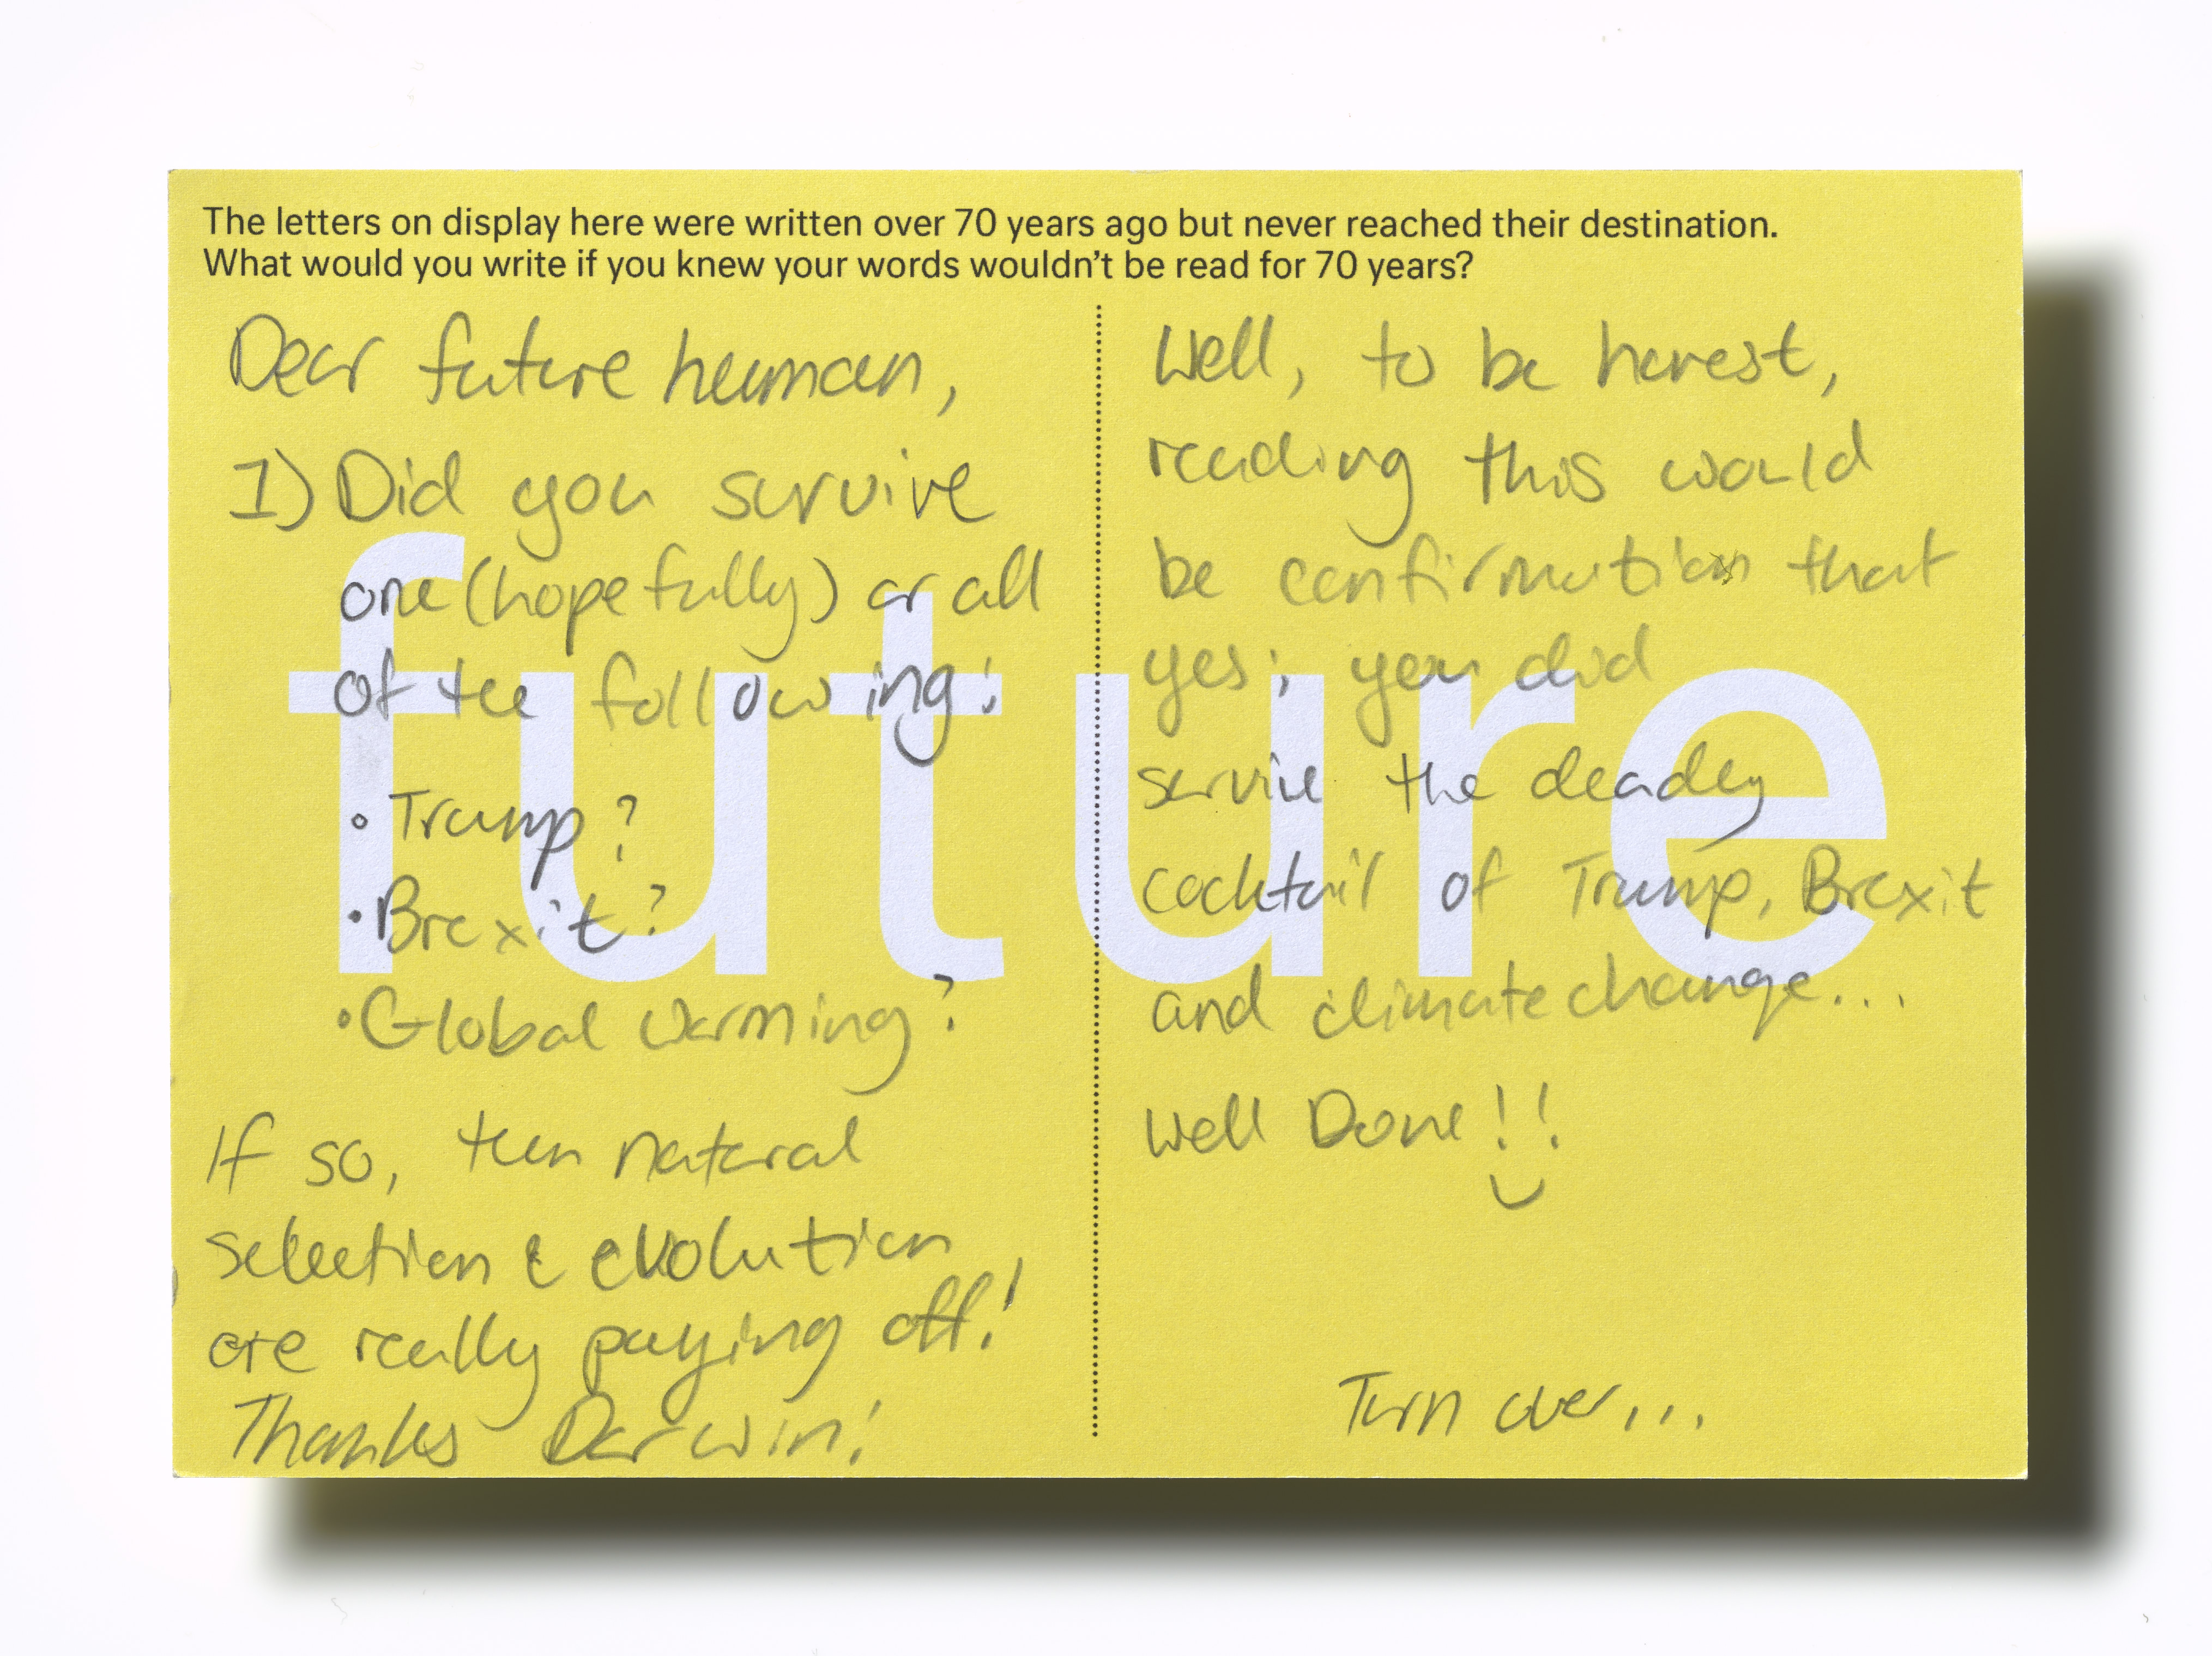 The letters on display here were written over 70 years ago but never reached their destination.
What would you write if you knew your words wouldn't be read for 70 years?
Dear future human,
1) Did you survive
one (hopefully) or all
of the following:
• Trump?
• Brexit?
• Global warming?
If so, then natural
selection & evolution
are really paying off!
Thanks Darwin!
Well, to be honest,
reading this would
be confirmation that
yes; you did
survive the deadly
cocktail of Trump, Brexit
and climate change...
Well Done!!
Turn over...
future